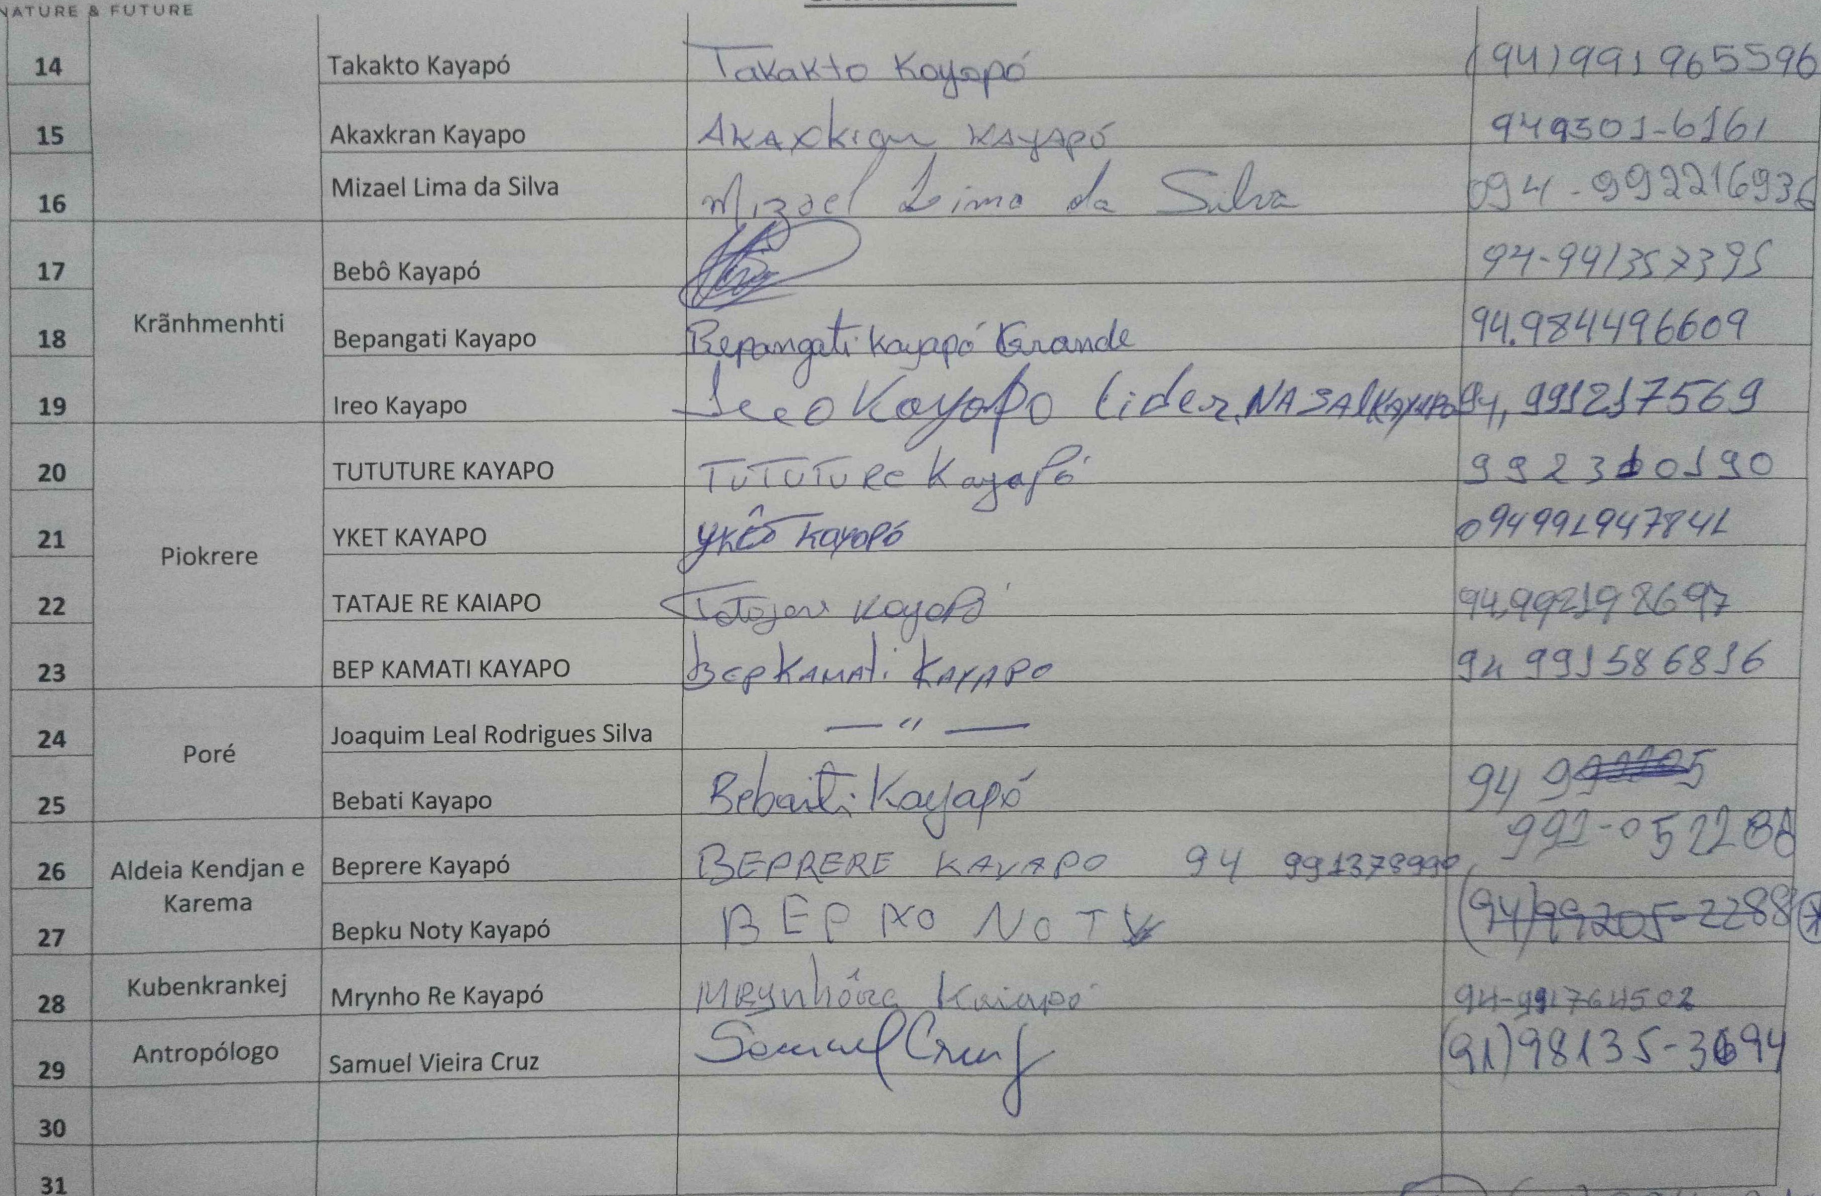 NATURE & FUTURE
14 Takakto Kayapó Takakto Kayapó (94)991965596
15 Akaxkran Kayapo AKAXkran KAYAPÓ 949301-6161
16 Mizael Lima da Silva Mizael Lima da Silva 094-992216936
17 Bebô Kayapó 94-991357395
Krãnhmenhti
18 Bepangati Kayapo Bepangati Kayapó Grande 94.984496609
19 Ireo Kayapo Ireo Kayapo Lider, 94, 991217569
20 TUTUTURE KAYAPO TUTUTURE Kayapó 992310190
21 YKET KAYAPO YKÊT Kayapó 094991947841
Piokrere
22 TATAJE RE KAIAPO Kayapó 94.992198697
23 BEP KAMATI KAYAPO BEPKAMATi KAYAPO 94 991586816
24 Joaquim Leal Rodrigues Silva — " —
Poré
25 Bebati Kayapo Bebaiti Kayapó 94
26 Aldeia Kendjan e Beprere Kayapó BEPRERE KAYAPO 94
Karema
27 Bepku Noty Kayapó BEP NOTY (94)99205-2288
28 Kubenkrankej Mrynho Re Kayapó Kaiapó 94-991764502
29 Antropólogo Samuel Vieira Cruz Samuel Cruz (91)98135-3694
30
31